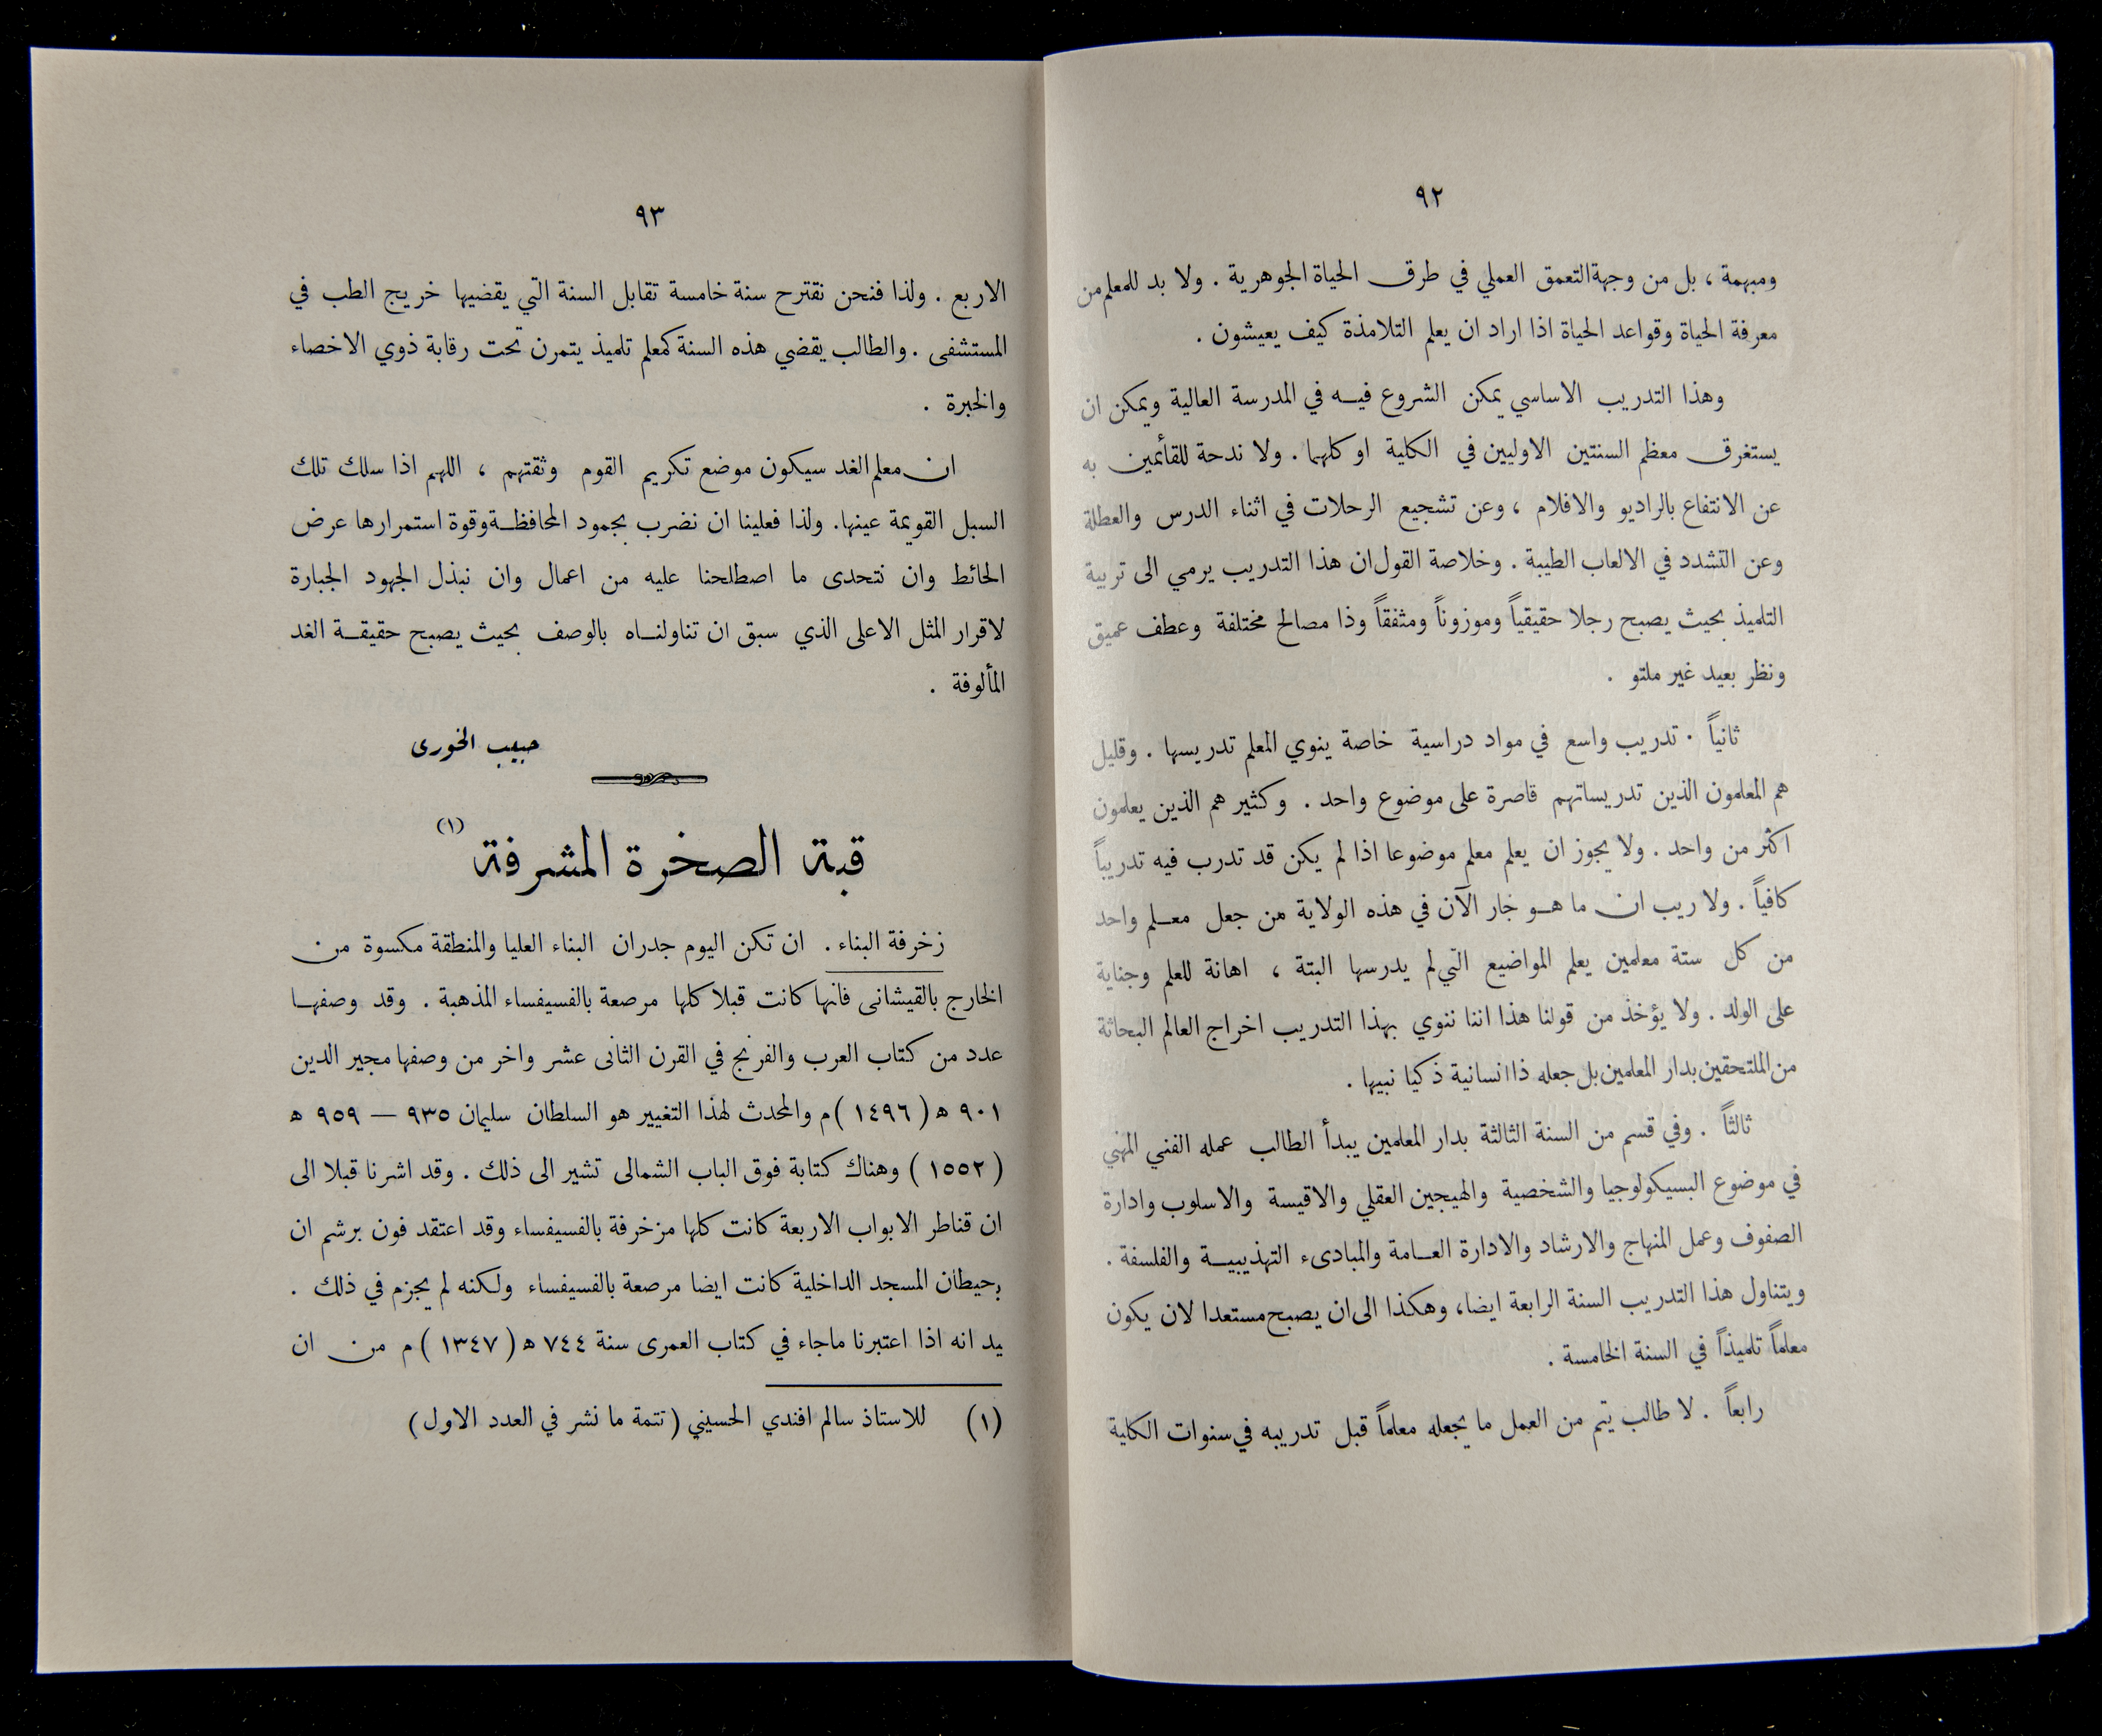 ٩٢
ومبهمة ، بل من وجهة التعمق العملي في طرق الحياة الجوهرية . ولا بد للمعلم من
معرفة الحياة وقواعد الحياة اذا اراد ان يعلم التلامذة كيف يعيشون .
وهذا التدريب الاساسي يمكن الشروع فيه في المدرسة العالية ويمكن ان
يستغرق معظم السنتين الاوليين في الكلية او كلهما . ولا ندحة للقائمين به
عن الانتفاع بالراديو والافلام ، وعن تشجيع الرحلات في اثناء الدرس والعطلة
وعن التشدد في الالعاب الطيبة . وخلاصة القول ان هذا التدريب يرمي الى تربية
التلميذ بحيث يصبح رجلا حقيقياً وموزوناً ومثفقاً وذا مصالح مختلفة وعطف عميق
ونظر بعيد غير ملتو .
ثانياً . تدريب واسع في مواد دراسية خاصة ينوي المعلم تدريسها . وقليل
هم المعلمون الذين تدريساتهم قاصرة على موضوع واحد . وكثير هم الذين يعلمون
اكثر من واحد . ولا يجوز ان يعلم معلم موضوعا اذا لم يكن قد تدرب فيه تدريباً
كافياً . ولا ريب ان ما هو جار الآن في هذه الولاية من جعل معلم واحد
من كل ستة معلمين يعلم المواضيع التي لم يدرسها البتة ، اهانة للعلم وجناية
على الولد . ولا يؤخذ من قولنا هذا اننا ننوي بهذا التدريب اخراج العالم البحاثة
من الملتحقين بدار المعلمين بل جعله ذا انسانية ذكيا نبيها .
ثالثاً . وفي قسم من السنة الثالثة بدار المعلمين يبدأ الطالب عمله الفني المهني
في موضوع البسيكولوجيا والشخصية والهيجين العقلي والاقيسة والاسلوب وادارة
الصفوف وعمل المنهاج والارشاد والادارة العامة والمبادىء التهذيبية والفلسفة .
ويتناول هذا التدريب السنة الرابعة ايضا، وهكذا الى ان يصبح مستعدا لان يكون
معلماً تلميذاً في السنة الخامسة .
رابعاً . لا طالب يتم من العمل ما يجعله معلماً قبل تدريبه في سنوات الكلية
٩٣
الاربع . ولذا فنحن نقترح سنة خامسة تقابل السنة التي يقضيها خريج الطب في
المستشفى . والطالب يقضي هذه السنة كمعلم تلميذ يتمرن تحت رقابة ذوي الاخصاء
والخبرة .
ان معلم الغد سيكون موضع تكريم القوم وثقتهم ، اللهم اذا سلك تلك
السبل القويمة عينها. ولذا فعلينا ان نضرب بجمود المحافظة وقوة استمرارها عرض
الحائط وان نتحدى ما اصطلحنا عليه من اعمال وان نبذل الجهود الجبارة
لاقرار المثل الاعلى الذي سبق ان تناولناه بالوصف بحيث يصبح حقيقة الغد
المألوفة .
حبيب الخورى
قبة الصخرة المشرفة (١)
زخرفة البناء . ان تكن اليوم جدران البناء العليا والمنطقة مكسوة من
الخارج بالقيشانى فانها كانت قبلا كلها مرصعة بالفسيفساء المذهبة . وقد وصفها
عدد من كتاب العرب والفرنج في القرن الثانى عشر واخر من وصفها مجير الدين
٩٠١ ه ( ١٤٩٦ ) م والمحدث لهذا التغيير هو السلطان سليمان ٩٣٥ — ٩٥٩ ه
( ١٥٥٢ ) وهناك كتابة فوق الباب الشمالى تشير الى ذلك . وقد اشرنا قبلا الى
ان قناطر الابواب الاربعة كانت كلها مزخرفة بالفسيفساء وقد اعتقد فون برشم ان
حيطان المسجد الداخلية كانت ايضا مرصعة بالفسيفساء ولكنه لم يجزم في ذلك .
يد انه اذا اعتبرنا ماجاء في كتاب العمرى سنة ٧٤٤ ه ( ١٣٤٧ ) م من ان
(١) للاستاذ سالم افندي الحسيني (تتمة ما نشر في العدد الاول)